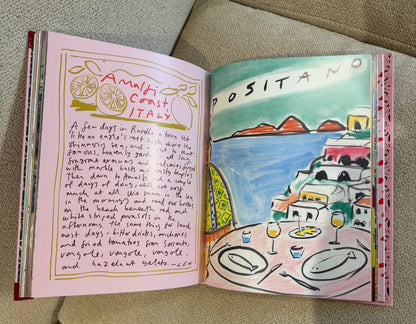 Amalfi
Coast,
ITALY
A few days in Ravello, town set
like an eagle's nest high above the
shimmering sea, and
famous, heavenly gardens
fragrant
with marble busts and
Then down to for a couple
of days of doing all not very
much at all. We swam in the sea
in the mornings and read our books
on the beach beneath red and
white striped parasols in
afternoons. The same thing for lunch
most days - bitter drinks, anchovies
and fried tomatoes from Sorrento,
vongole, vongole, vongole,
and hazelnut gelato.
POSITANO